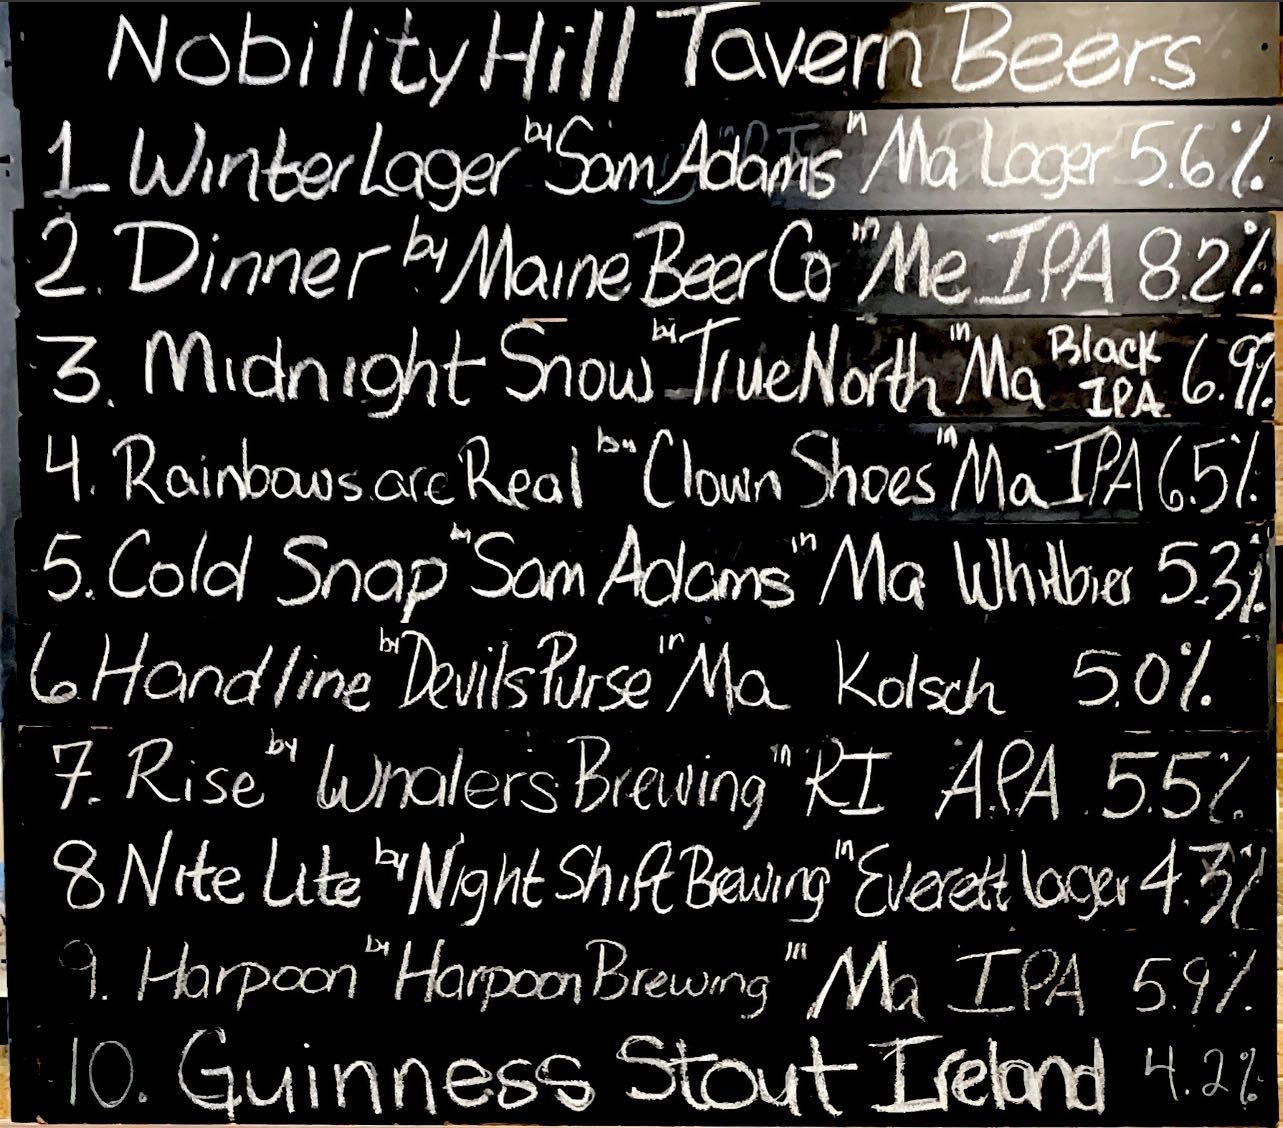 Nobility Hill Tavern Beers
1 Winter Lager by Sam Adams in Ma Lager 5.6%
2. Dinner by Maine Beer Co in Me IPA 8.2%
3. Midnight Snow by True North in Ma Black IPA 6.9%
4. Rainbows are Real by Clown Shoes in Ma IPA 6.5%
5. Cold Snap by Sam Adams in Ma Whitbier 5.3%
6 Handline by Devils Purse in Ma Kolsch 5.0%
7. Rise by Whalers Brewing in RI APA 5.5%
8 Nite Lite by Night Shift Brewing in Everett Lager 4.3%
9. Harpoon by Harpoon Brewing in Ma IPA 5.9%
10. Guinness Stout Ireland 4.2%